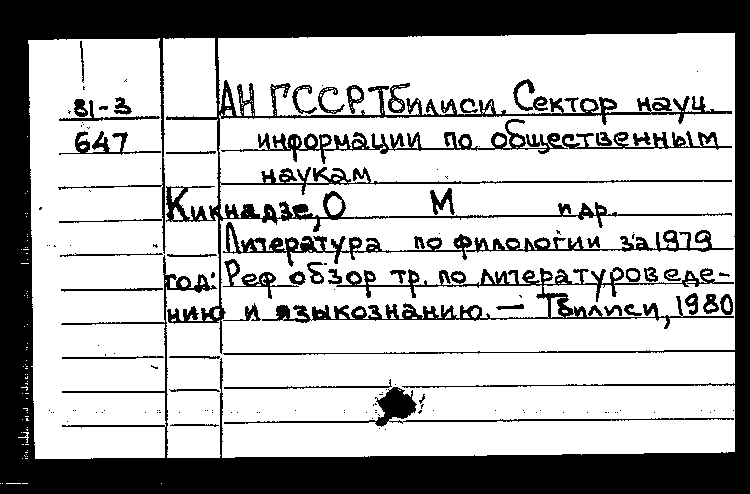 81-3 АН ГССР. Тбилиси. Сектор науч.
647 информации по общественным
наукам.
Кикнадзе, О М и др.
Литература по филологии за 1979
год: Реф обзор тр. по литературоведе-
нию и языкознанию. — Тбилиси, 1980